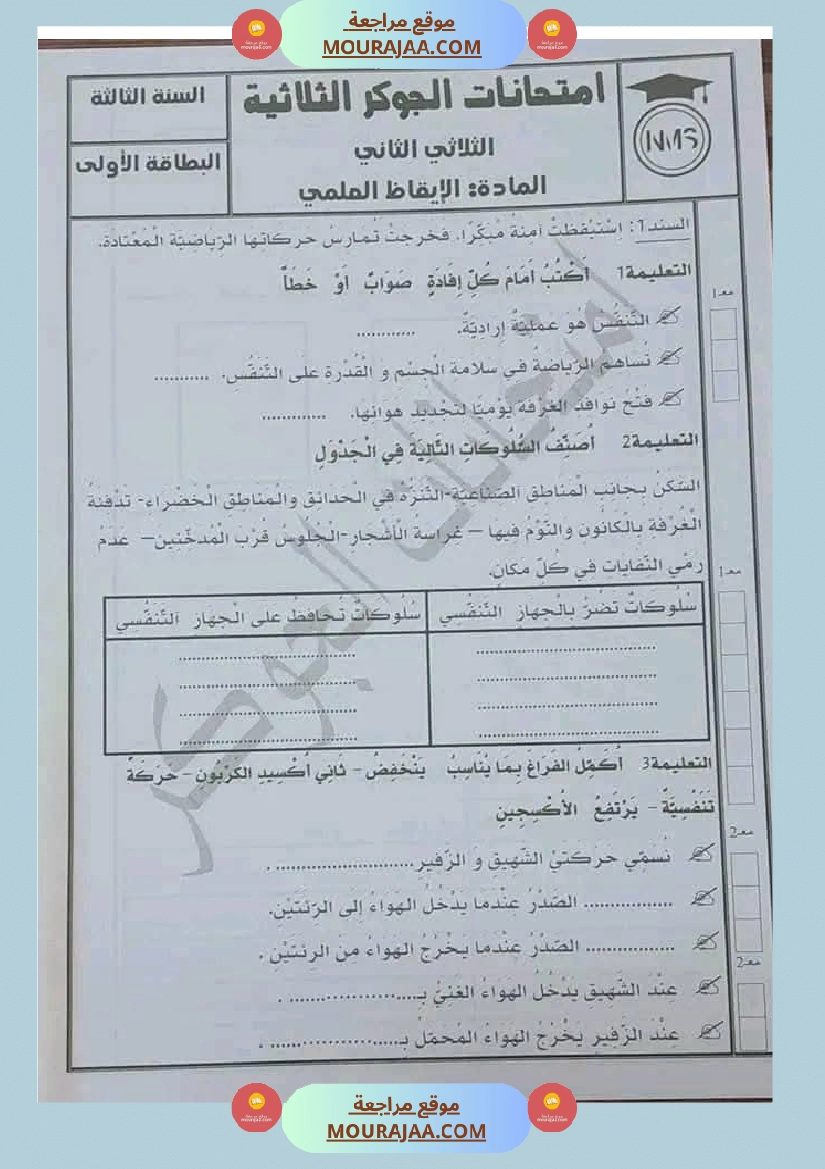 موقع مراجعة
MOURAJAA.COM
امتحانات الجوكر الثلاثية
السنة الثالثة
الثلاثي الثاني
البطاقة الأولى
المادة: الإيقاظ العلمي
NMS
السند1: اسْتَيْقَظَتْ آمنةُ مُبَكِّرًا. فخرجتْ تُمارسُ حركاتها الرّياضيّة الْمُعْتادة.
التعليمة1 أَكْتُبُ أَمَامَ كُلِّ إِفَادَةٍ صَوَابٌ أَوْ خَطَأٌ
مع1
التّنفّسُ هُوَ عمليّةٌ إراديّةٌ. ............
تُساهم الرّياضةُ في سلامة الْجسْم و الْقُدْرة على التّنفّس. ...........
فتْحُ نوافذ الغرْفة يوْميّا لتجْديد هوائها. .............
التعليمة2 أُصَنِّفُ السُّلُوكَاتِ التَّالِيَةَ فِي الْجَدْوَلِ
السّكنُ بجانب الْمناطق الصّناعيّة-التّنزّهُ في الْحدائق والْمناطق الْخضْراء- تدْفئةُ
الْغُرْفة بالْكانون والنّوْمُ فيها – غراسة الْأشْجار-الْجلوسُ قُرْب الْمُدخّنين– عدمُ
رمْي النّفايات في كُلّ مكان.
مع1
سُلُوكاتٌ تضُرُّ بالْجهاز التّنفّسي
سُلُوكاتٌ تُحافظُ على الْجهاز التّنفّسي
التعليمة3 أُكَمِّلُ الفَرَاغَ بِمَا يُنَاسِبُ يَنْخَفِضُ - ثَانِي أُكْسِيدِ الكَرْبُونِ - حَرَكَةٌ
تَنَفُّسِيَّةٌ - يَرْتَفِعُ الأُكْسِجِينِ
مع2
نُسمّي حَركتيْ الشّهيق و الزّفير............................ .
................. الصّدْرُ عنْدما يدْخُلُ الهواءُ إلى الرّئتيْن.
................. الصّدْرُ عنْدما يخْرُجُ الهواءُ منَ الرئتيْن .
مع2
عنْدَ الشّهيق يدْخُلُ الهواءُ الغنيُّ بـ......................... .
عنْدَ الزّفير يخْرُجُ الهواءُ المُحمّلُ بـ......................... .
امتحانات الجوكر
موقع مراجعة
MOURAJAA.COM